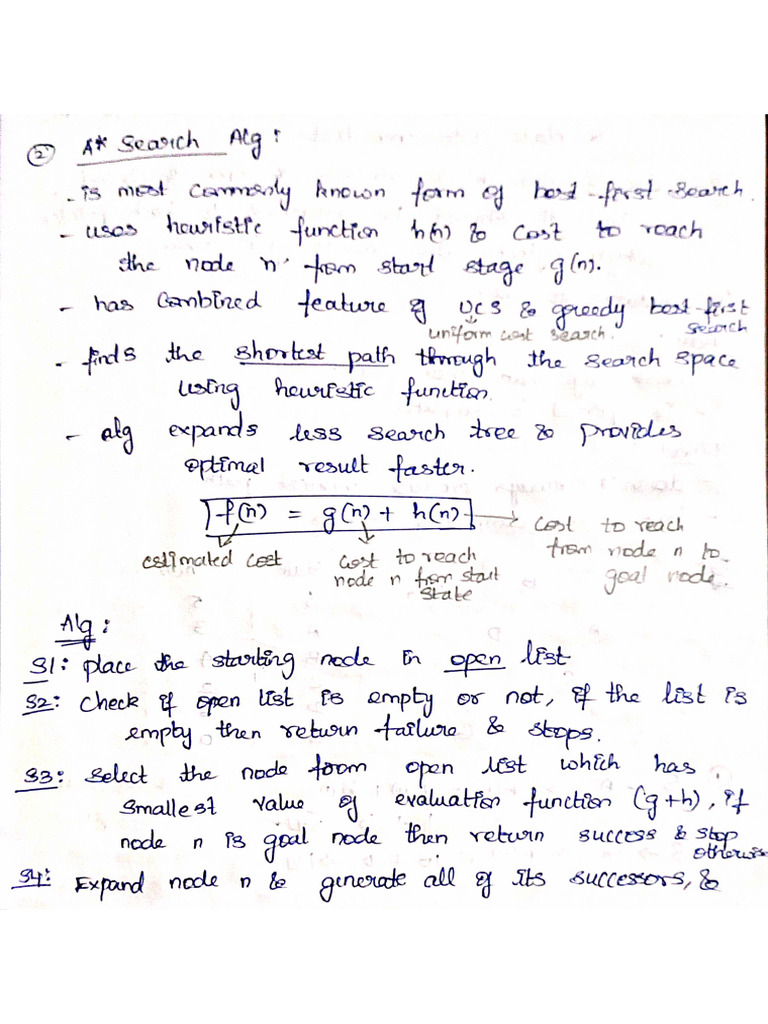 ② A* Search Alg:
- is most commonly known form of best-first search.
- uses heuristic function h(n) & cost to reach
the node 'n' from start stage g(n).
- has combined feature of UCS & greedy best-first
uniform cost search. search
- finds the shortest path through the search space
using heuristic function.
- alg expands less search tree & provides
optimal result faster.
f(n) = g(n) + h(n) → cost to reach
estimated cost cost to reach from node n to
node n from start goal node.
state
Alg:
S1: place the starting node in open list
S2: Check if open list is empty or not, if the list is
empty then return failure & stops.
S3: Select the node from open list which has
smallest value of evaluation function (g+h), if
node n is goal node then return success & stop
otherwise
S4: Expand node n & generate all of its successors, &